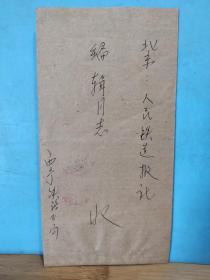 北京：人民铁道报社
编辑同志
收
西宁铁路分局